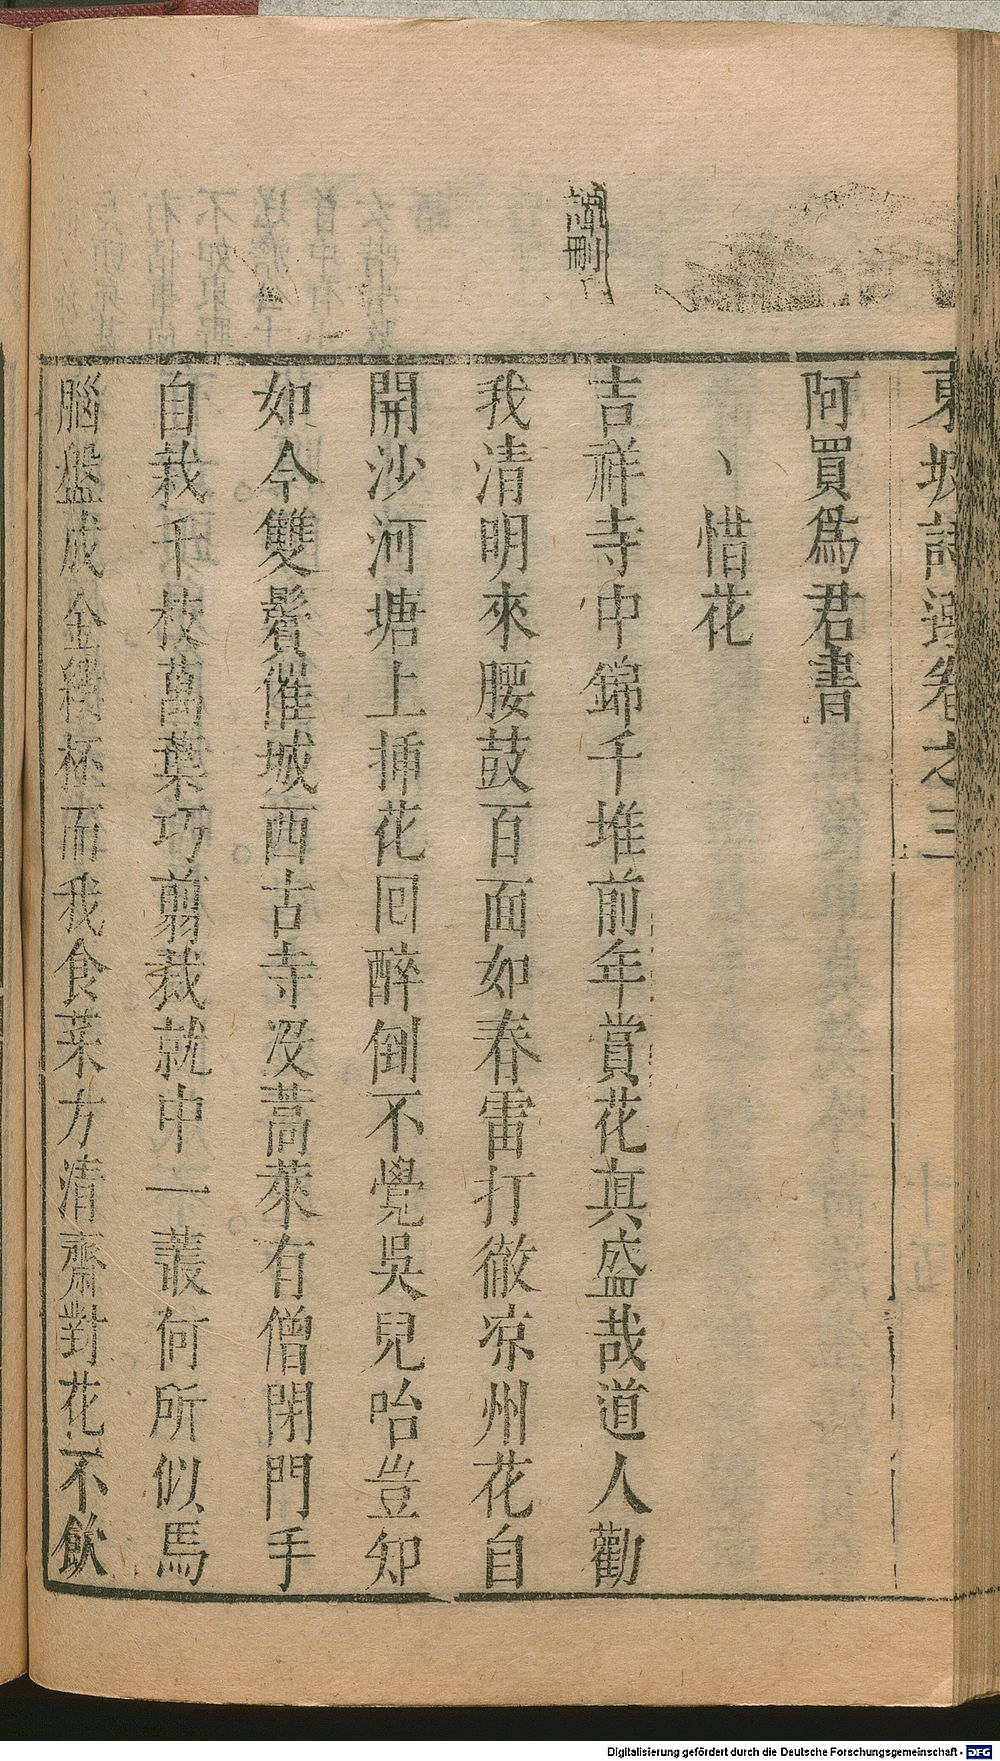 東坡詩選卷之三
阿買爲君書
、惜花
吉祥寺中錦千堆前年賞花眞盛哉道人勸
我清明來腰鼓百面如春雷打徹凉州花自
開沙河塘上揷花回醉倒不覺吳兒咍豈知
如今雙鬢催城西古寺沒蒿萊有僧閉門手
自栽千枝萬葉巧剪裁就中一叢何所似馬
腦盤成金縷杯而我食菜方清齋對花不飲
刪
Digitalisierung gefördert durch die Deutsche Forschungsgemeinschaft - DFG